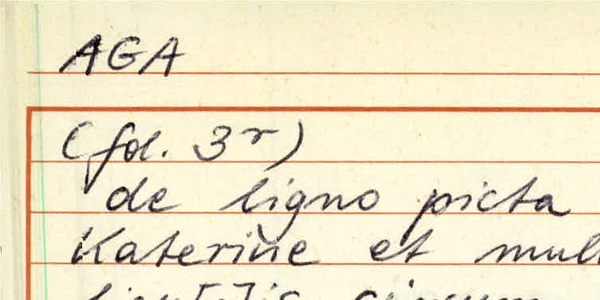 AGA
(fol. 3r)
de ligno picta
Katerine et mul